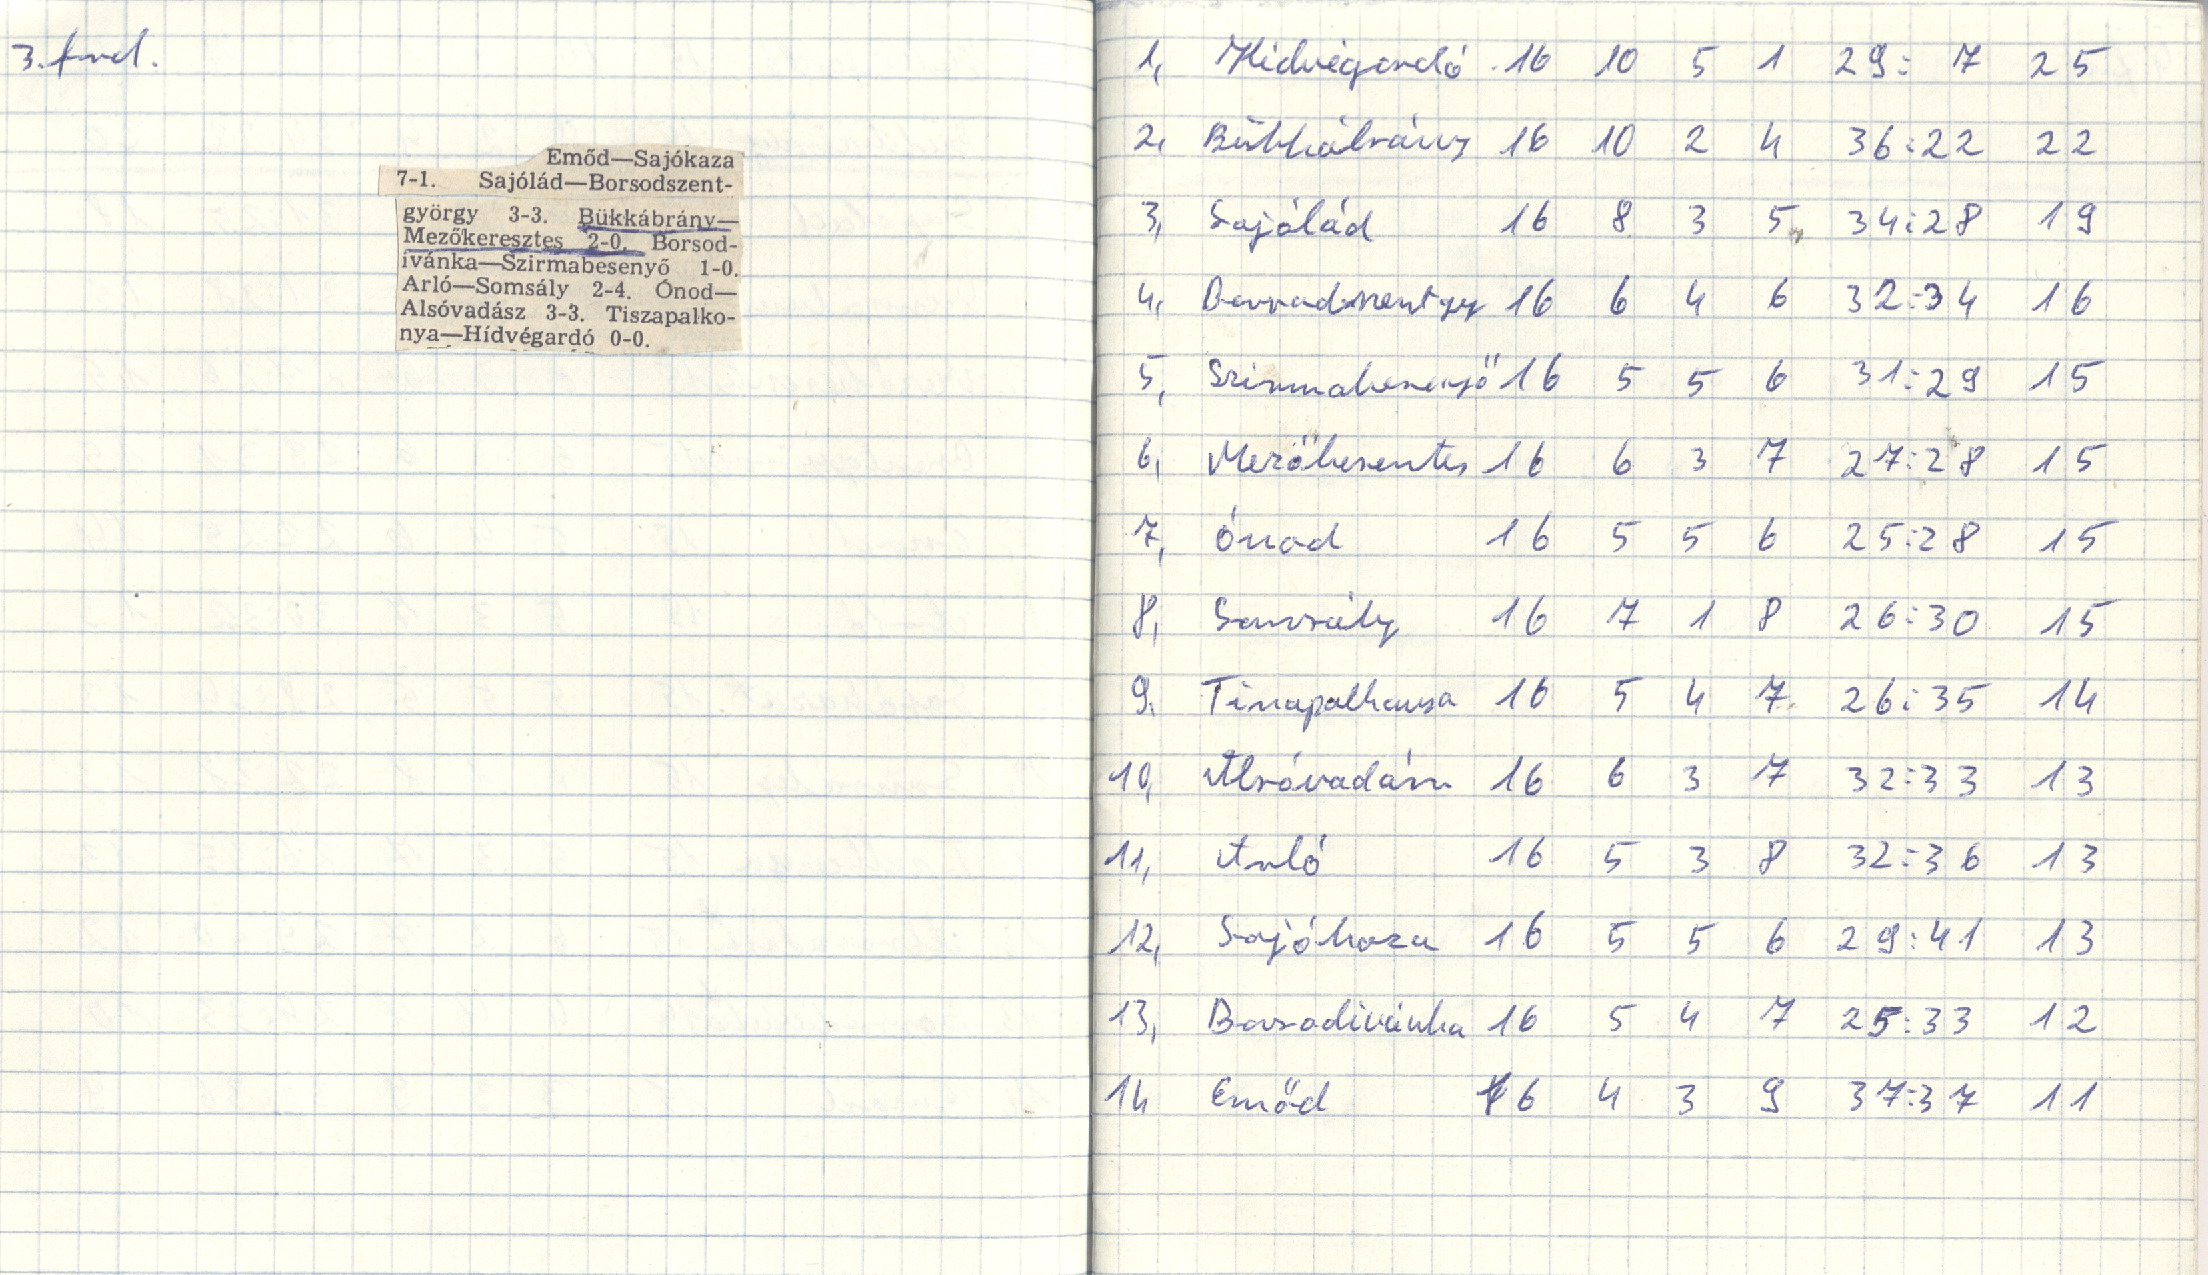 3. ford.
Emőd—Sajókaza
7-1. Sajólád—Borsodszent-
györgy 3-3. Bükkábrány—
Mezőkeresztes 2-0. Borsod-
ivánka—Szirmabesenyő 1-0.
Arló—Somsály 2-4. Ónod—
Alsóvadász 3-3. Tiszapalko-
nya—Hídvégardó 0-0.
1, Hidvégardó 16 10 5 1 29: 7 25
2, Bükkábrány 16 10 2 4 36:22 22
3, Sajólád 16 8 3 5 34:28 19
4, Borsodszentgy 16 6 4 6 32:34 16
5, Szirmabesenyő 16 5 5 6 31:29 15
6, Mezőkeresztes 16 6 3 7 27:28 15
7, Ónod 16 5 5 6 25:28 15
8, Somsály 16 7 1 8 26:30 15
9. Tiszapalkonya 16 5 4 7 26:35 14
10, Alsóvadász 16 6 3 7 32:33 13
11, Arló 16 5 3 8 32:36 13
12, Sajókaza 16 5 5 6 29:41 13
13, Borsodivánka 16 5 4 7 25:33 12
14 Emőd 16 4 3 9 37:37 11